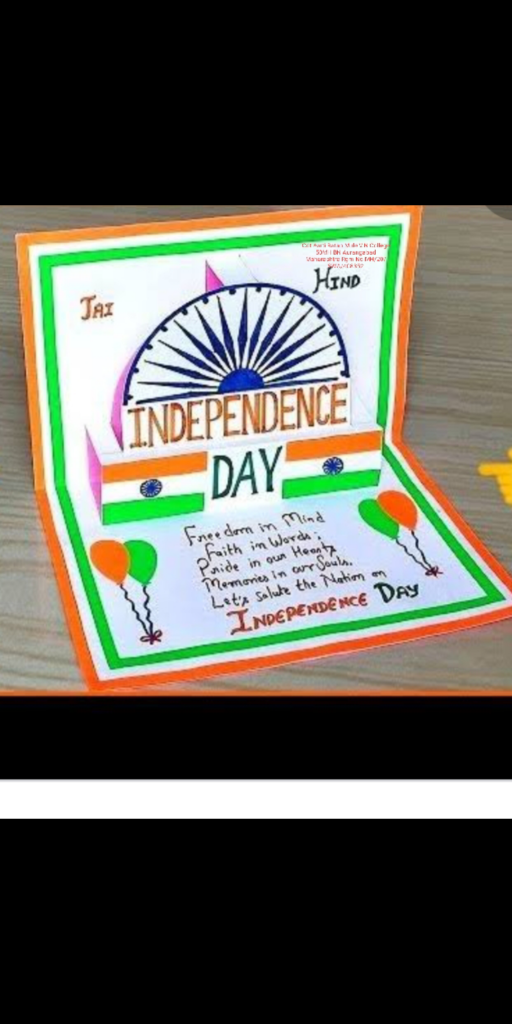 JAI HIND
College
BN Aurangabad
Maharashtra
INDEPENDENCE
DAY
Freedom in Mind
Faith in Words;
Pride in our Hearts
Memories in our Souls.
Let's salute the Nation on
INDEPENDENCE DAY